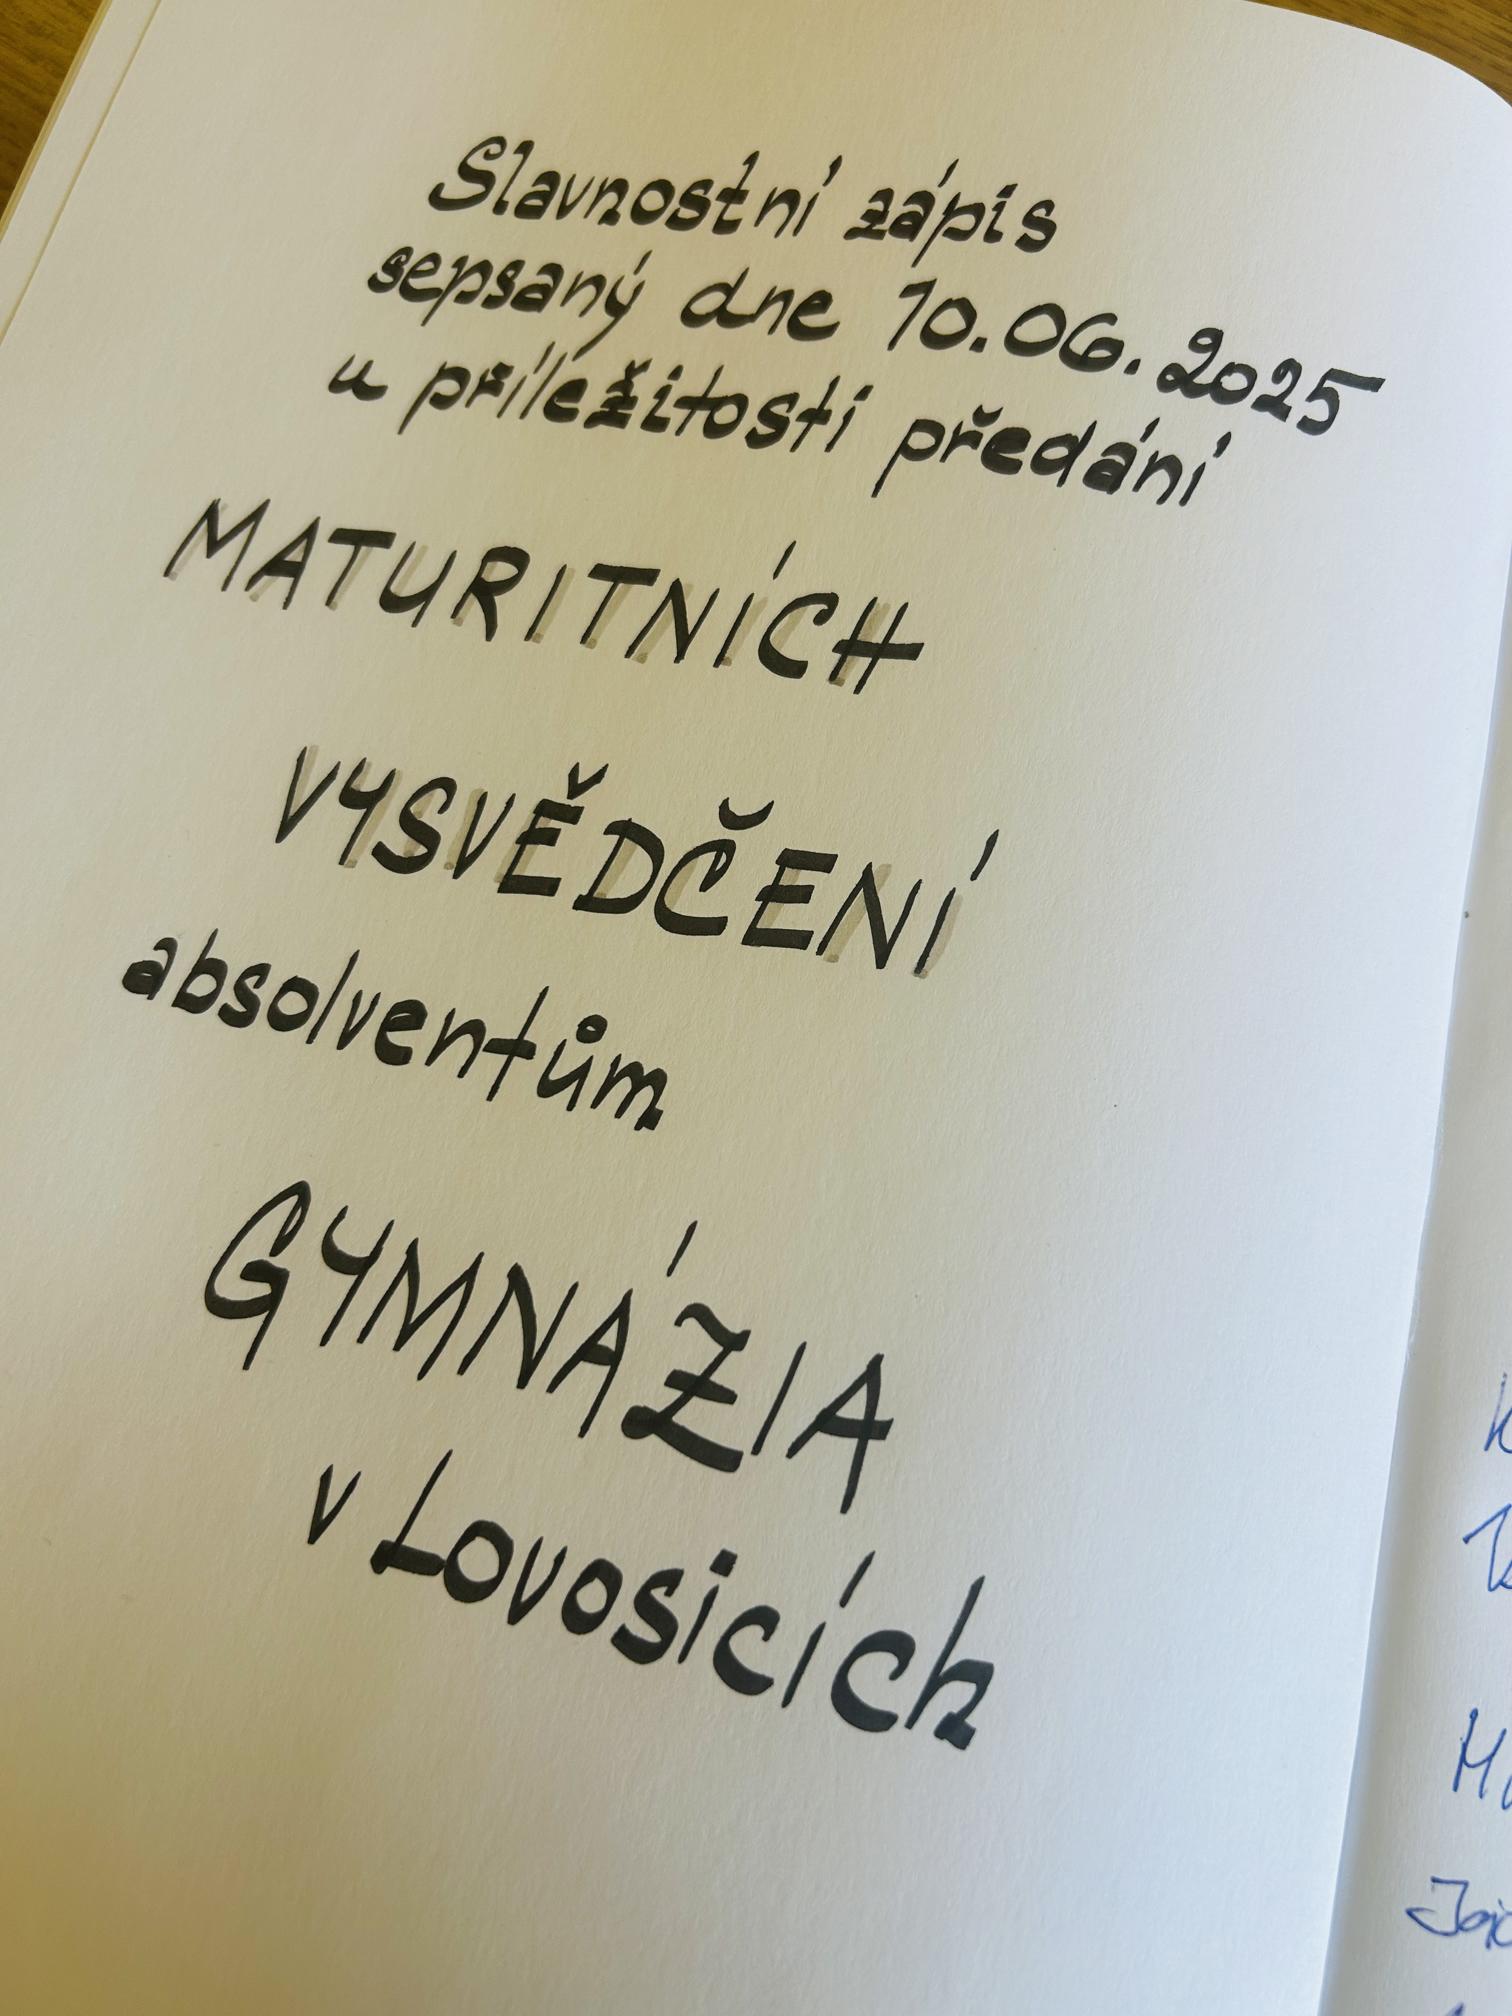 Slavnostní zápis
sepsaný dne 10.06.2025
u příležitosti předání
MATURITNÍCH
VYSVĚDČENÍ
absolventům
GYMNÁZIA
v Lovosicích